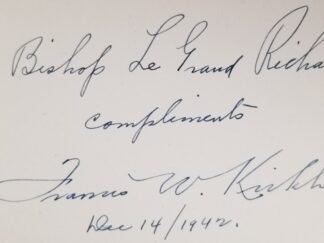 Bishop Le Grand Richa
compliments
Francis W. Kirkh
Dec 14/1942.